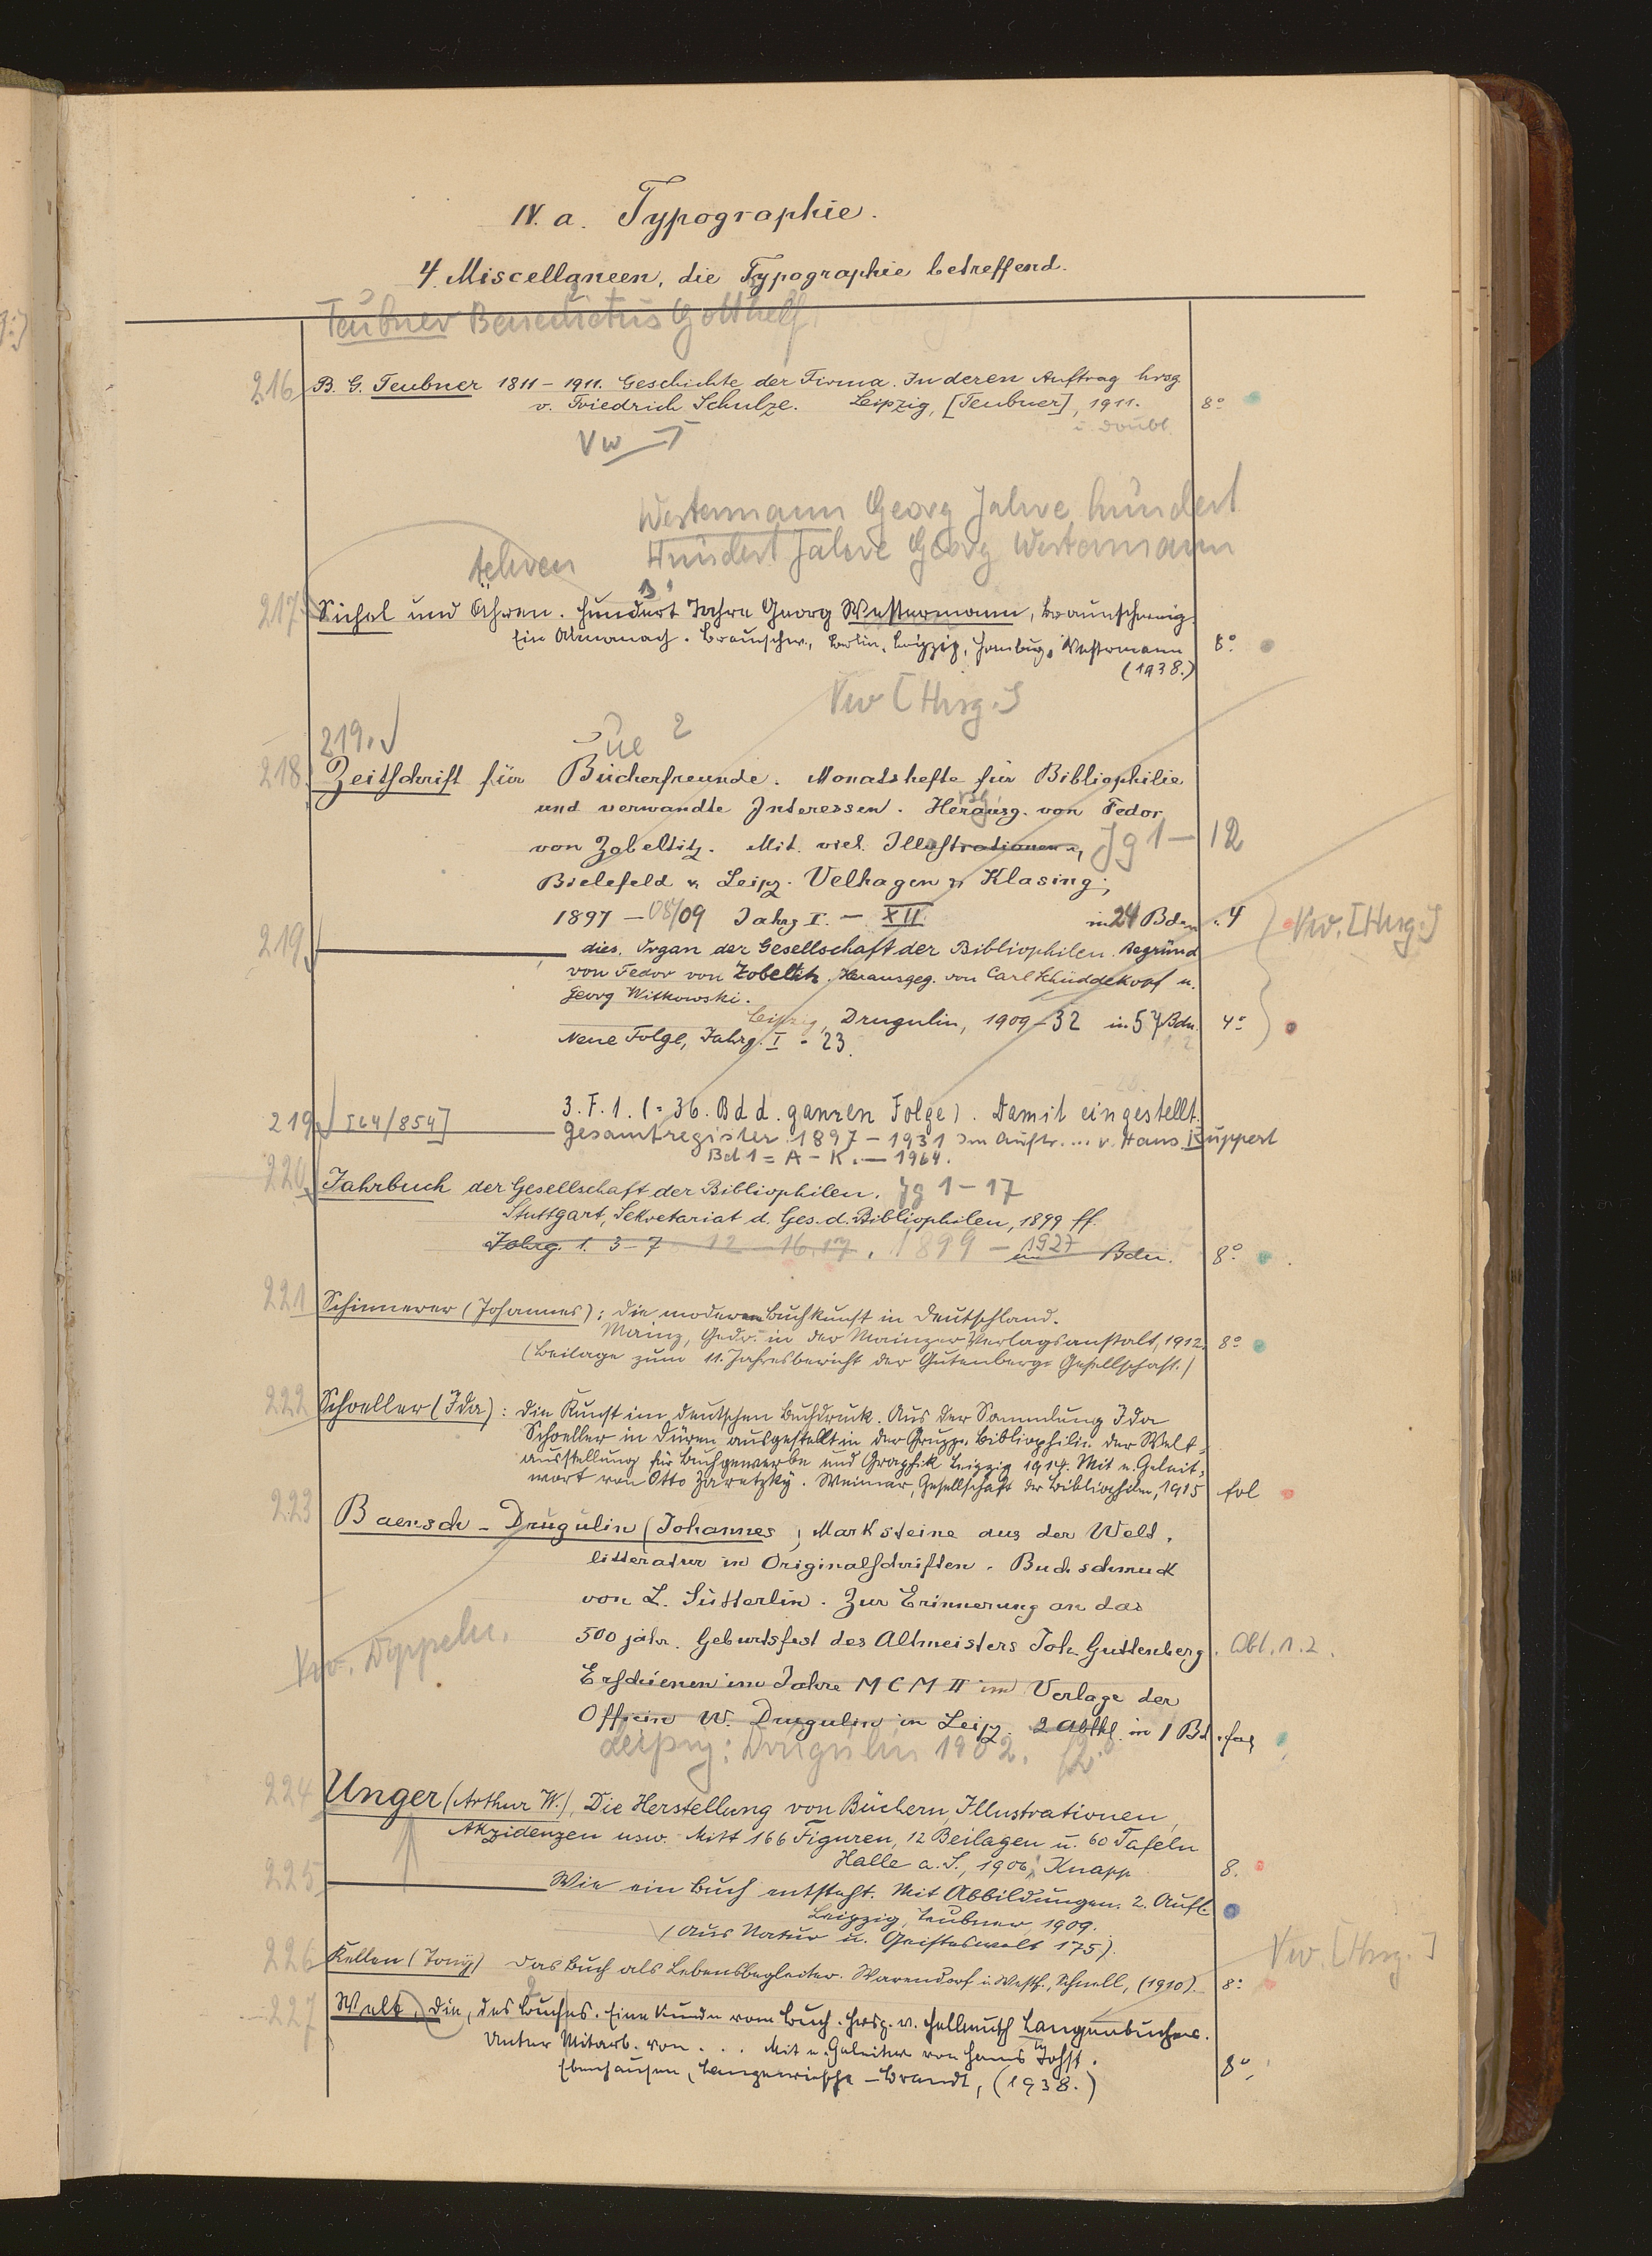 IV. a. Typographie.
4. Miscellaneen, die Typographie betreffend.
Teubner Benedictus Gotthelf
216 B. G. Teubner 1811 – 1911. Geschichte der Firma. In deren Auftrag hrsg
v. Friedrich Schulze. Leipzig, [Teubner], 1911. 8°
i. Doubl.
Vw
Westermann Georg Jahre hundert
Ähren Hundert Jahre Georg Westermann
217 Sichel und Ähren. Hundert Jahre Georg Westermann, Braunschweig.
Ein Almanach. Braunschw., Berlin, Leipzig, Hamburg, Westermann 8°
(1938.)
Vw [Hrsg.]
219. ue 2
218 Zeitschrift für Bücherfreunde. Monatshefte für Bibliophilie
und verwandte Interessen. Herausg. von Fedor
von Zobeltitz. Mit viel. Illustrationen, Jg 1 – 12
Bielefeld u. Leipz. Velhagen u. Klasing;
1897 – 08/09 Jahrg I. – XII. in 24 Bdn . 4 Vw. [Hrsg.]
219 dies. Organ der Gesellschaft der Bibliophilen. Begründ
von Fedor von Zobeltitz. Herausgeg. von Carl Schüddekopf u.
Georg Witkowski.
Leipzig, Drugulin, 1909 – 32 in 57 Bdn. 4°
Neue Folge, Jahrg. I - 23.
3. F. 1. (= 36. Bd d. ganzen Folge). Damit eingestellt.
219 [64/854] Gesamtregister 1897 – 1931 Im Auftr. ... v. Hans Ruppert
Bd 1 = A – K. – 1964.
220 Jahrbuch der Gesellschaft der Bibliophilen. Jg 1 – 17
Stuttgart, Sekretariat d. Ges. d. Bibliophilen, 1899 ff.
Jahrg. 1. 3 – 7 12 – 16. 17. 1899 – 1927 in Bdn. 8°
221 Schinnerer (Johannes): Die moderne Buchkunst in Deutschland.
Mainz, Gedr. in der Mainzer Verlagsanstalt, 1912. 8°
(Beilage zum 11. Jahresbericht der Gutenberg-Gesellschaft.)
222 Schoeller (Ida): Die Kunst im deutschen Buchdruck. Aus der Sammlung Ida
Schoeller in Düren ausgestellt in der Gruppe Bibliophilie der Welt-
ausstellung für Buchgewerbe und Graphik Leipzig 1914. Mit e. Geleit-
wort von Otto Zaretzky. Weimar, Gesellschaft der Bibliophilen, 1915 fol
223 Baensch - Drugulin (Johannes, Marksteine aus der Welt-
litteratur in Originalschriften. Buchschmuck
von L. Sütterlin. Zur Erinnerung an das
500 jähr. Geburtsfest des Altmeisters Joh. Guttenberg. Abt. 1.2.
Vw. Doppeln.
Erschienen im Jahre MCMII im Verlage der
Officin W. Drugulin in Leipz. 2 Abthl. in 1 Bd. fol
Leipzig: Drugulin 1902. 2°
224 Unger (Arthur W.), Die Herstellung von Büchern, Illustrationen,
Akzidenzen usw. Mitt 166 Figuren, 12 Beilagen u. 60 Tafeln
Halle a. S., 1906, Knapp 8.
225 Wie ein Buch entsteht. Mit Abbildungen. 2. Aufl.
Leipzig, Teubner, 1909.
(Aus Natur u. Geisteswelt 175).
226 Kellen (Tony) Das Buch als Lebensbegleiter. Warendorf i. Westf., Schnell, (1910). 8° Vw. [Hrsg.]
227 Welt, Die, des Buches. Eine Kunde vom Buch. Hrsg. v. Hellmuth Langenbucher.
Unter Mitarb. von . . . Mit e. Geleitw. von Hanns Johst.
Ebenhausen, Langewiesche – Brandt, (1938.) 8°